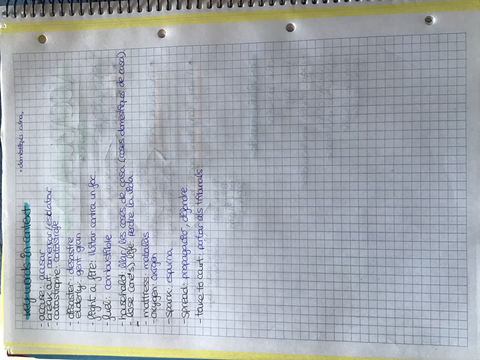 Key words in context
- accuse: acusar
- break out: començar/esclatar
- catastrophe: catàstrofe
- disaster: desastre
- elderly: gent gran
- fight a fire: lluitar contra un foc
- fuel: combustible
- household: llar/les coses de casa (coses domèstiques de casa)
- lose (one's) life: perdre la vida
- mattress: matalàs
- oxygen: oxigen
- spark: espurna
- spread: propagar,
- take to court: portar als tribunals